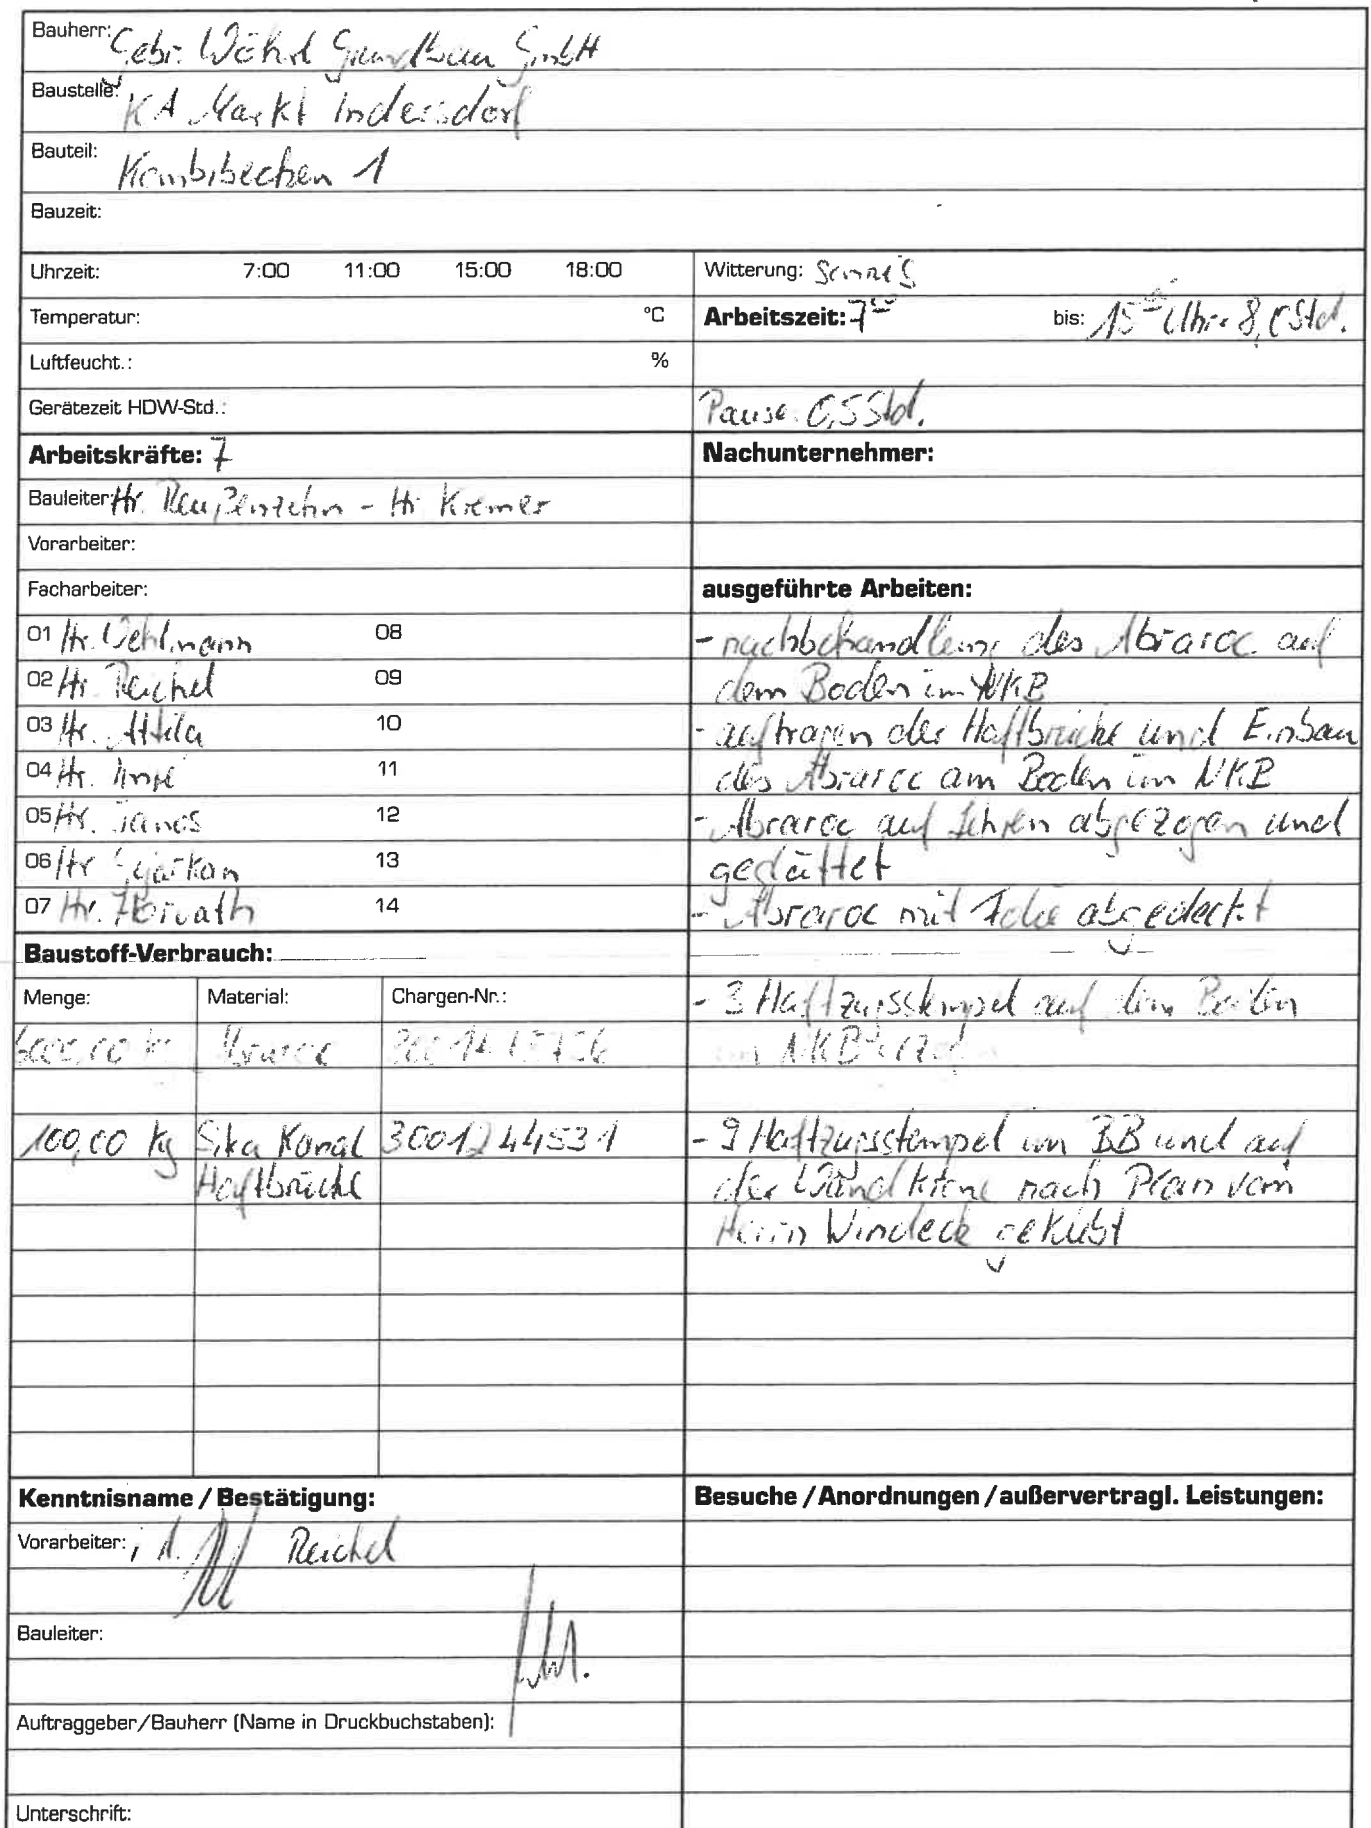 Bauherr: Gebr. Wöhrl Grundbau GmbH
Baustelle: KA Markt Indersdorf
Bauteil: Kombibecken 1
Bauzeit:
Uhrzeit: 7:00 11:00 15:00 18:00
Witterung: sonnig
Temperatur: °C
Arbeitszeit: 7⁰⁰ bis: 15⁰⁰ Uhr = 8,0 Std.
Luftfeucht.: %
Gerätezeit HDW-Std.:
Pause: 0,5 Std.
Arbeitskräfte: 7
Nachunternehmer:
Bauleiter: Hr. - Hr. Kremer
Vorarbeiter:
Facharbeiter:
01 Hr. 08
02 Hr. Reichel 09
03 Hr. Attila 10
04 Hr. 11
05 Hr. Janos 12
06 Hr. 13
07 Hr. Horvath 14
ausgeführte Arbeiten:
- nachbehandlung des Abraroc auf
dem Boden im NKB
- auftragen der Haftbrücke und Einbau
des Abraroc am Boden im NKB
- Abraroc auf Lehren abgezogen und
geglättet
- Abraroc mit Folie abgedeckt
- 3 Haftzugsstempel auf dem Boden
NKB
- 9 Haftzugsstempel im BB und auf
der Wandkrone nach Plan vom
Herrn Windeck geklebt
Baustoff-Verbrauch:
Menge: Material: Chargen-Nr.:
6000,00 kg Abraroc
100,00 kg Sika Kanal 3001244531
Haftbrücke
Kenntnisname / Bestätigung:
Vorarbeiter: i. A. Reichel
Bauleiter:
Auftraggeber/Bauherr (Name in Druckbuchstaben):
Unterschrift:
Besuche / Anordnungen / außervertragl. Leistungen: